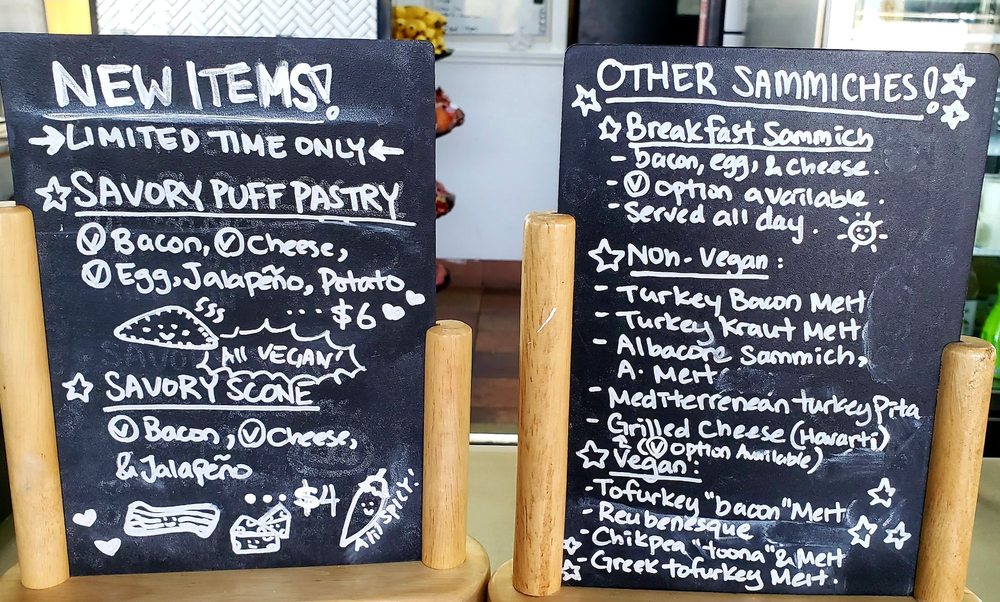 NEW ITEMS!
→LIMITED TIME ONLY←
☆SAVORY PUFF PASTRY
Ⓥ Bacon, Ⓥ Cheese,
Ⓥ Egg, Jalapeño, Potato
... $6
All VEGAN!
☆ SAVORY SCONE
Ⓥ Bacon, Ⓥ Cheese,
& Jalapeño
... $4
AHH SPICY!
OTHER SAMMICHES!
☆ Breakfast Sammich
- bacon, egg, & cheese.
- Ⓥ Option available.
- Served all day.
☆ Non-Vegan:
- Turkey Bacon Melt
- Turkey Kraut Melt
- Albacore Sammich,
A. Melt
- Mediterrenean turkey Pita
- Grilled Cheese (Havarti)
↑ (Ⓥ Option Available)
☆ Vegan:
- Tofurkey "bacon" Melt
- Reubenesque
- Chikpea "toona" & Melt
- Greek tofurkey Melt.